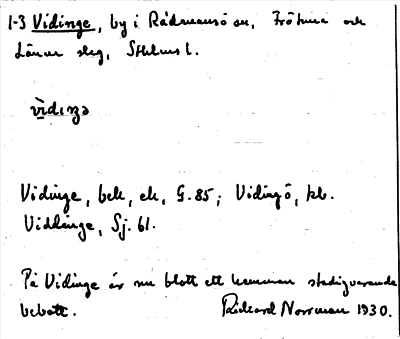 1-3 Vidinge, by i Rådmansö sn, Frötuna och
Länna slg, Sthlms l.
vìdıŋə
Vidinge, bek, ek, G. 85; Vidingö, kb.
Viddinge, Sj. 61.
På Vidinge är nu blott ett hemman stadigvarande
bebott. Rickard Norrman 1930.